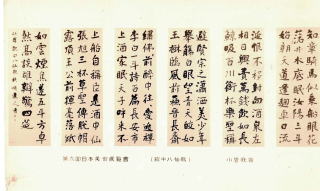 知章騎馬似乘船眼花
落井水底眠汝陽三斗
始朝天道逢麴車口流
涎恨不移封向酒泉左
相日興費萬錢飲如長
鯨吸百川銜杯樂聖稱
避賢宗之瀟灑美少年
舉觴白眼望青天皎如
玉樹臨風前蘇晉長齋
繡佛前醉中往々愛逃禪
李白一斗詩百篇長安市
上酒家眠天子呼來不
上船自稱臣是酒中仙
張旭三杯草聖傳脫帽
露頂王公前揮毫落紙
如雲煙焦遂五斗方卓
然高談雄辯驚四筵
(飲中八仙歌)